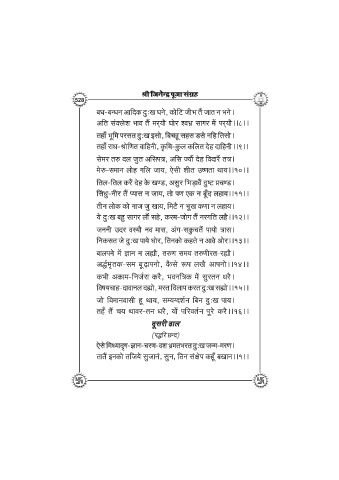 श्री जिनेन्द्र पूजा संग्रह
528
बध-बन्धन आदिक दु:ख घने, कोटि जीभ तैं जात न भने।
अति संक्लेश भाव तैं मर्‌यो घोर श्वभ्र सागर में पर्‌यो।।८।।
तहाँ भूमि परसत दु:ख इसो, बिच्छू सहस डसे नहि तिसो।
तहाँ राध-श्रोणित वाहिनी, कृमि-कुल कलित देह दाहिनी।।९।।
सेमर तरु दल जुत असिपत्र, असि ज्यौं देह विदारैं तत्र।
मेरु-समान लोह गलि जाय, ऐसी शीत उष्णता थाय।।१०।।
तिल-तिल करैं देह के खण्ड, असुर भिड़ावैं दुष्ट प्रचण्ड।
सिंधु-नीर तैं प्यास न जाय, तो पण एक न बूँद लहाय।।११।।
तीन लोक को नाज जु खाय, मिटै न भूख कणा न लहाय।
ये दु:ख बहु सागर लौं सहे, करम-जोग तैं नरगति लहै।।१२।।
जननी उदर वस्यौ नव मास, अंग-सकुचतैं पायो त्रास।
निकसत जे दु:ख पाये घोर, तिनको कहते न आवे ओर।।१३।।
बालपने में ज्ञान न लह्यौ, तरुण समय तरुणीरत-रह्यौ।
अर्द्धमृतक-सम बूढ़ापनो, कैसे रूप लखै आपनो।।१४।।
कभी अकाम-निर्जरा करै, भवनत्रिक में सुरतन धरै।
विषयचाह-दावानल दह्यो, मरत विलाप करत दु:ख सह्यो।।१५।।
जो विमानवासी हू थाय, सम्यग्दर्शन बिन दु:ख पाय।
तहँ तैं चय थावर-तन धरै, यों परिवर्तन पूरे करै।।१६।।
दूसरी ढाल
(पद्धरि छन्द)
ऐसे मिथ्यादृग-ज्ञान-चरण-वश भ्रमतभरत दु:ख जन्म-मरण।
तातैं इनको तजिये सुजानं, सुन, तिन संक्षेप कहूँ बखान।।१।।